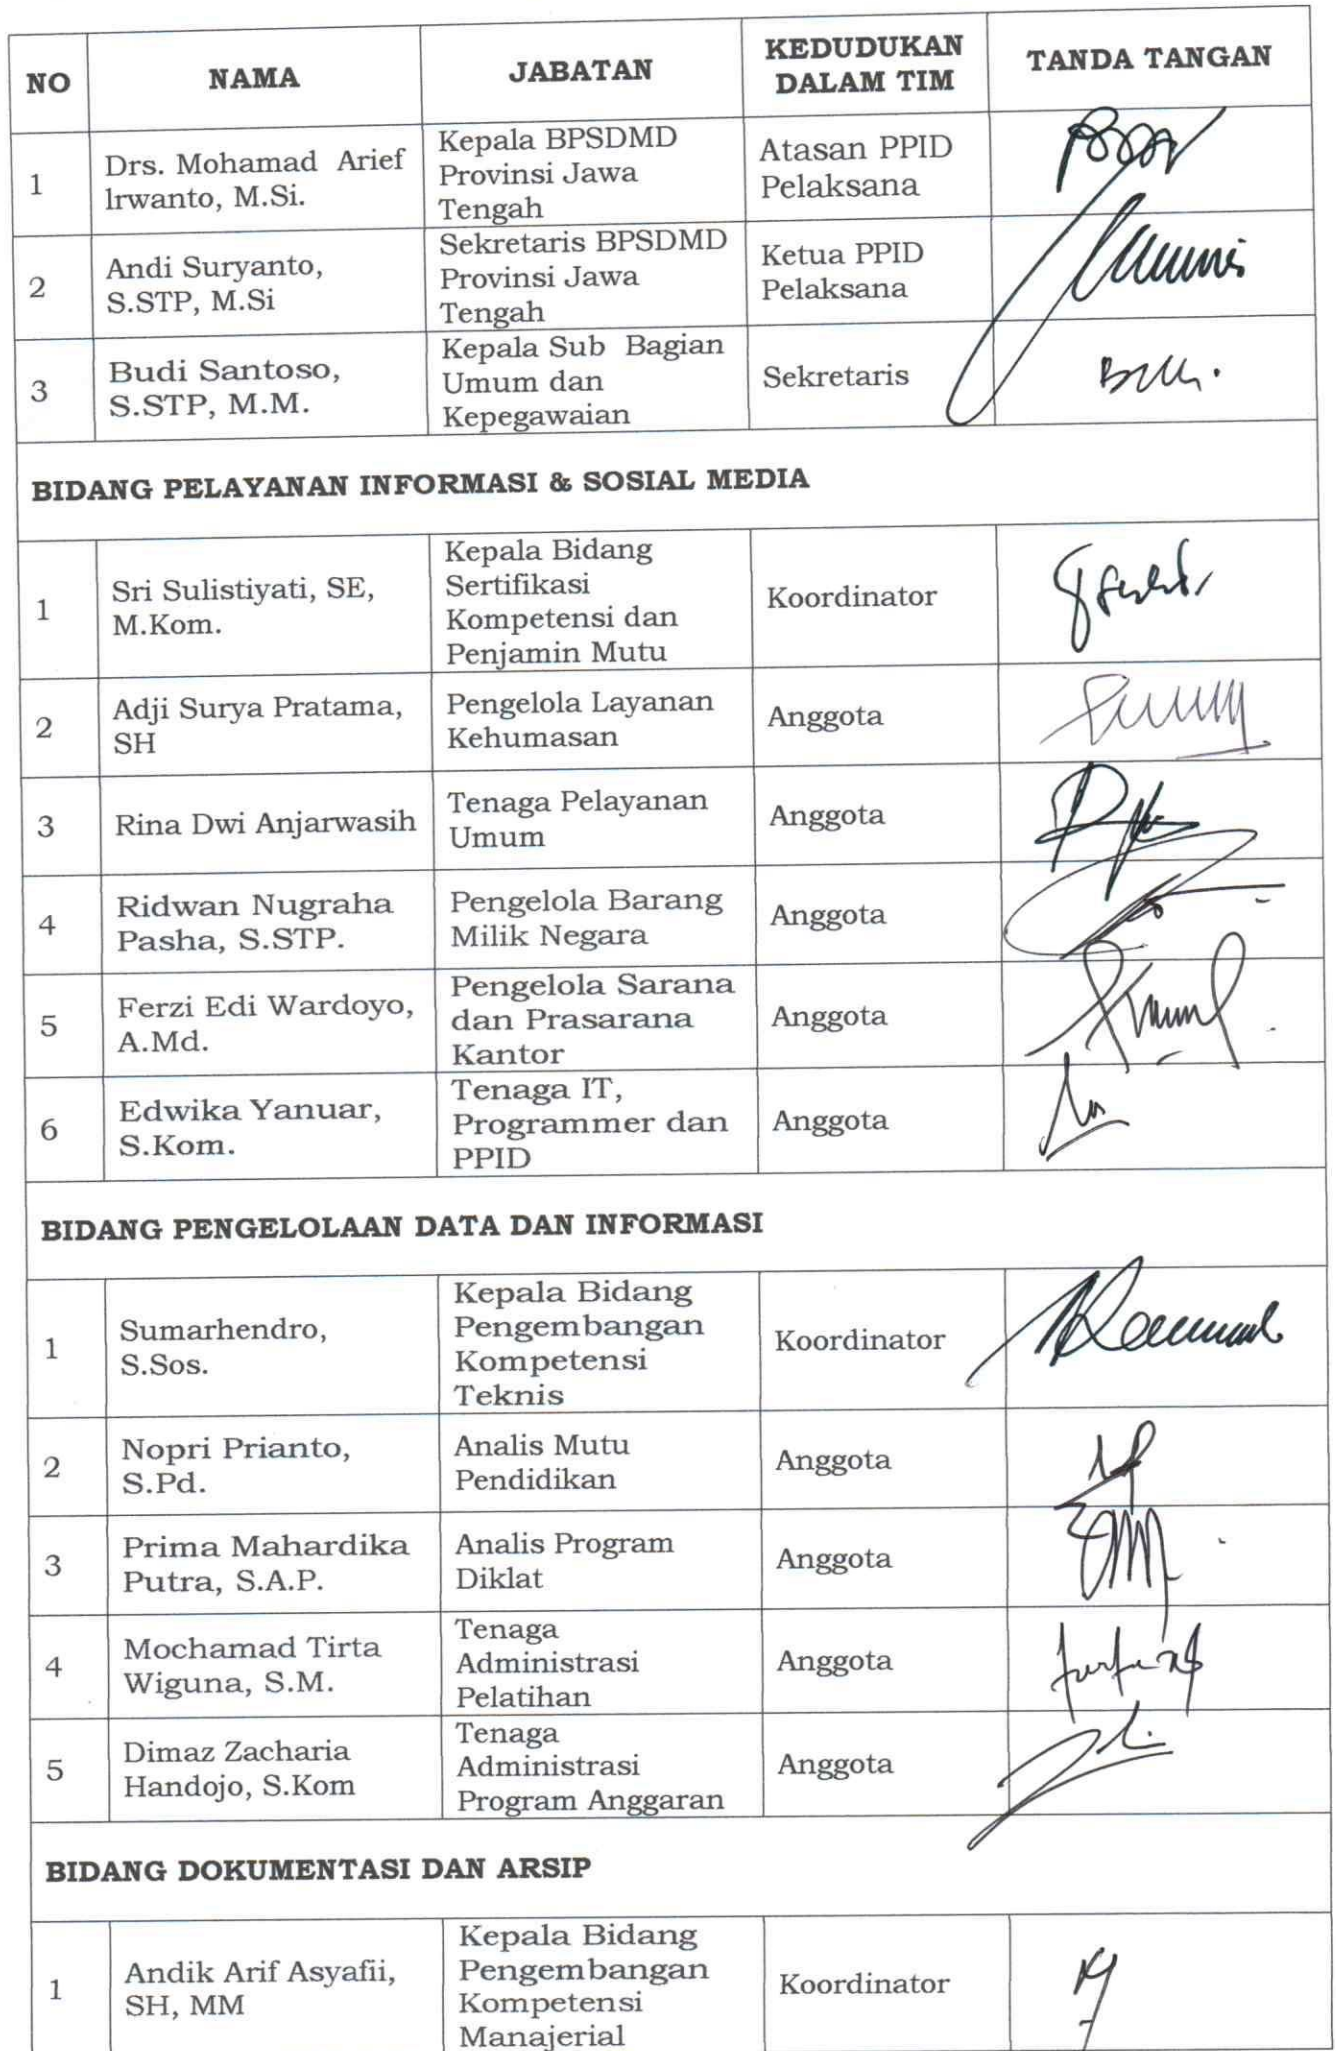 NO
NAMA
JABATAN
KEDUDUKAN
DALAM TIM
TANDA TANGAN
1
Drs. Mohamad Arief
lrwanto, M.Si.
Kepala BPSDMD
Provinsi Jawa
Tengah
Atasan PPID
Pelaksana
2
Andi Suryanto,
S.STP, M.Si
Sekretaris BPSDMD
Provinsi Jawa
Tengah
Ketua PPID
Pelaksana
3
Budi Santoso,
S.STP, M.M.
Kepala Sub Bagian
Umum dan
Kepegawaian
Sekretaris
BIDANG PELAYANAN INFORMASI & SOSIAL MEDIA
1
Sri Sulistiyati, SE,
M.Kom.
Kepala Bidang
Sertifikasi
Kompetensi dan
Penjamin Mutu
Koordinator
2
Adji Surya Pratama,
SH
Pengelola Layanan
Kehumasan
Anggota
3
Rina Dwi Anjarwasih
Tenaga Pelayanan
Umum
Anggota
4
Ridwan Nugraha
Pasha, S.STP.
Pengelola Barang
Milik Negara
Anggota
5
Ferzi Edi Wardoyo,
A.Md.
Pengelola Sarana
dan Prasarana
Kantor
Anggota
6
Edwika Yanuar,
S.Kom.
Tenaga IT,
Programmer dan
PPID
Anggota
BIDANG PENGELOLAAN DATA DAN INFORMASI
1
Sumarhendro,
S.Sos.
Kepala Bidang
Pengembangan
Kompetensi
Teknis
Koordinator
2
Nopri Prianto,
S.Pd.
Analis Mutu
Pendidikan
Anggota
3
Prima Mahardika
Putra, S.A.P.
Analis Program
Diklat
Anggota
4
Mochamad Tirta
Wiguna, S.M.
Tenaga
Administrasi
Pelatihan
Anggota
5
Dimaz Zacharia
Handojo, S.Kom
Tenaga
Administrasi
Program Anggaran
Anggota
BIDANG DOKUMENTASI DAN ARSIP
1
Andik Arif Asyafii,
SH, MM
Kepala Bidang
Pengembangan
Kompetensi
Manajerial
Koordinator